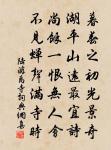 暮春之初光景奇
湖平山遠最宜詩
尚餘一恨無人會
不見蟬聲滿寺時
陸游禹寺詞典網集